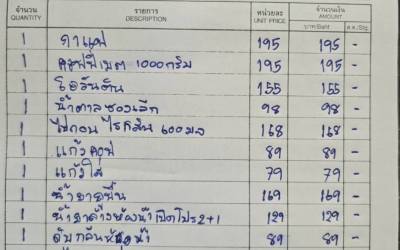 จำนวน QUANTITY รายการ DESCRIPTION หน่วยละ UNIT PRICE จำนวนเงิน AMOUNT
บาท/Baht ส.ต./Stg.
1 กาแฟ 195 195 -
1 คอฟฟี่เมต 1000กรัม 195 195 -
1 โอวันติน 155 155 -
1 น้ำตาลซองเล็ก 98 98 -
1 ไฮเตอร์ ไร้กลิ่น 600มล 168 168 -
1 แก้ว 89 89 -
1 แก้วใส 79 79 -
1 น้ำยาพื้น 169 169 -
1 น้ำยาล้างห้องน้ำเป็ดโปร2+1 129 129 -
1 ดับกลิ่นห้องน้ำ 89 89 -